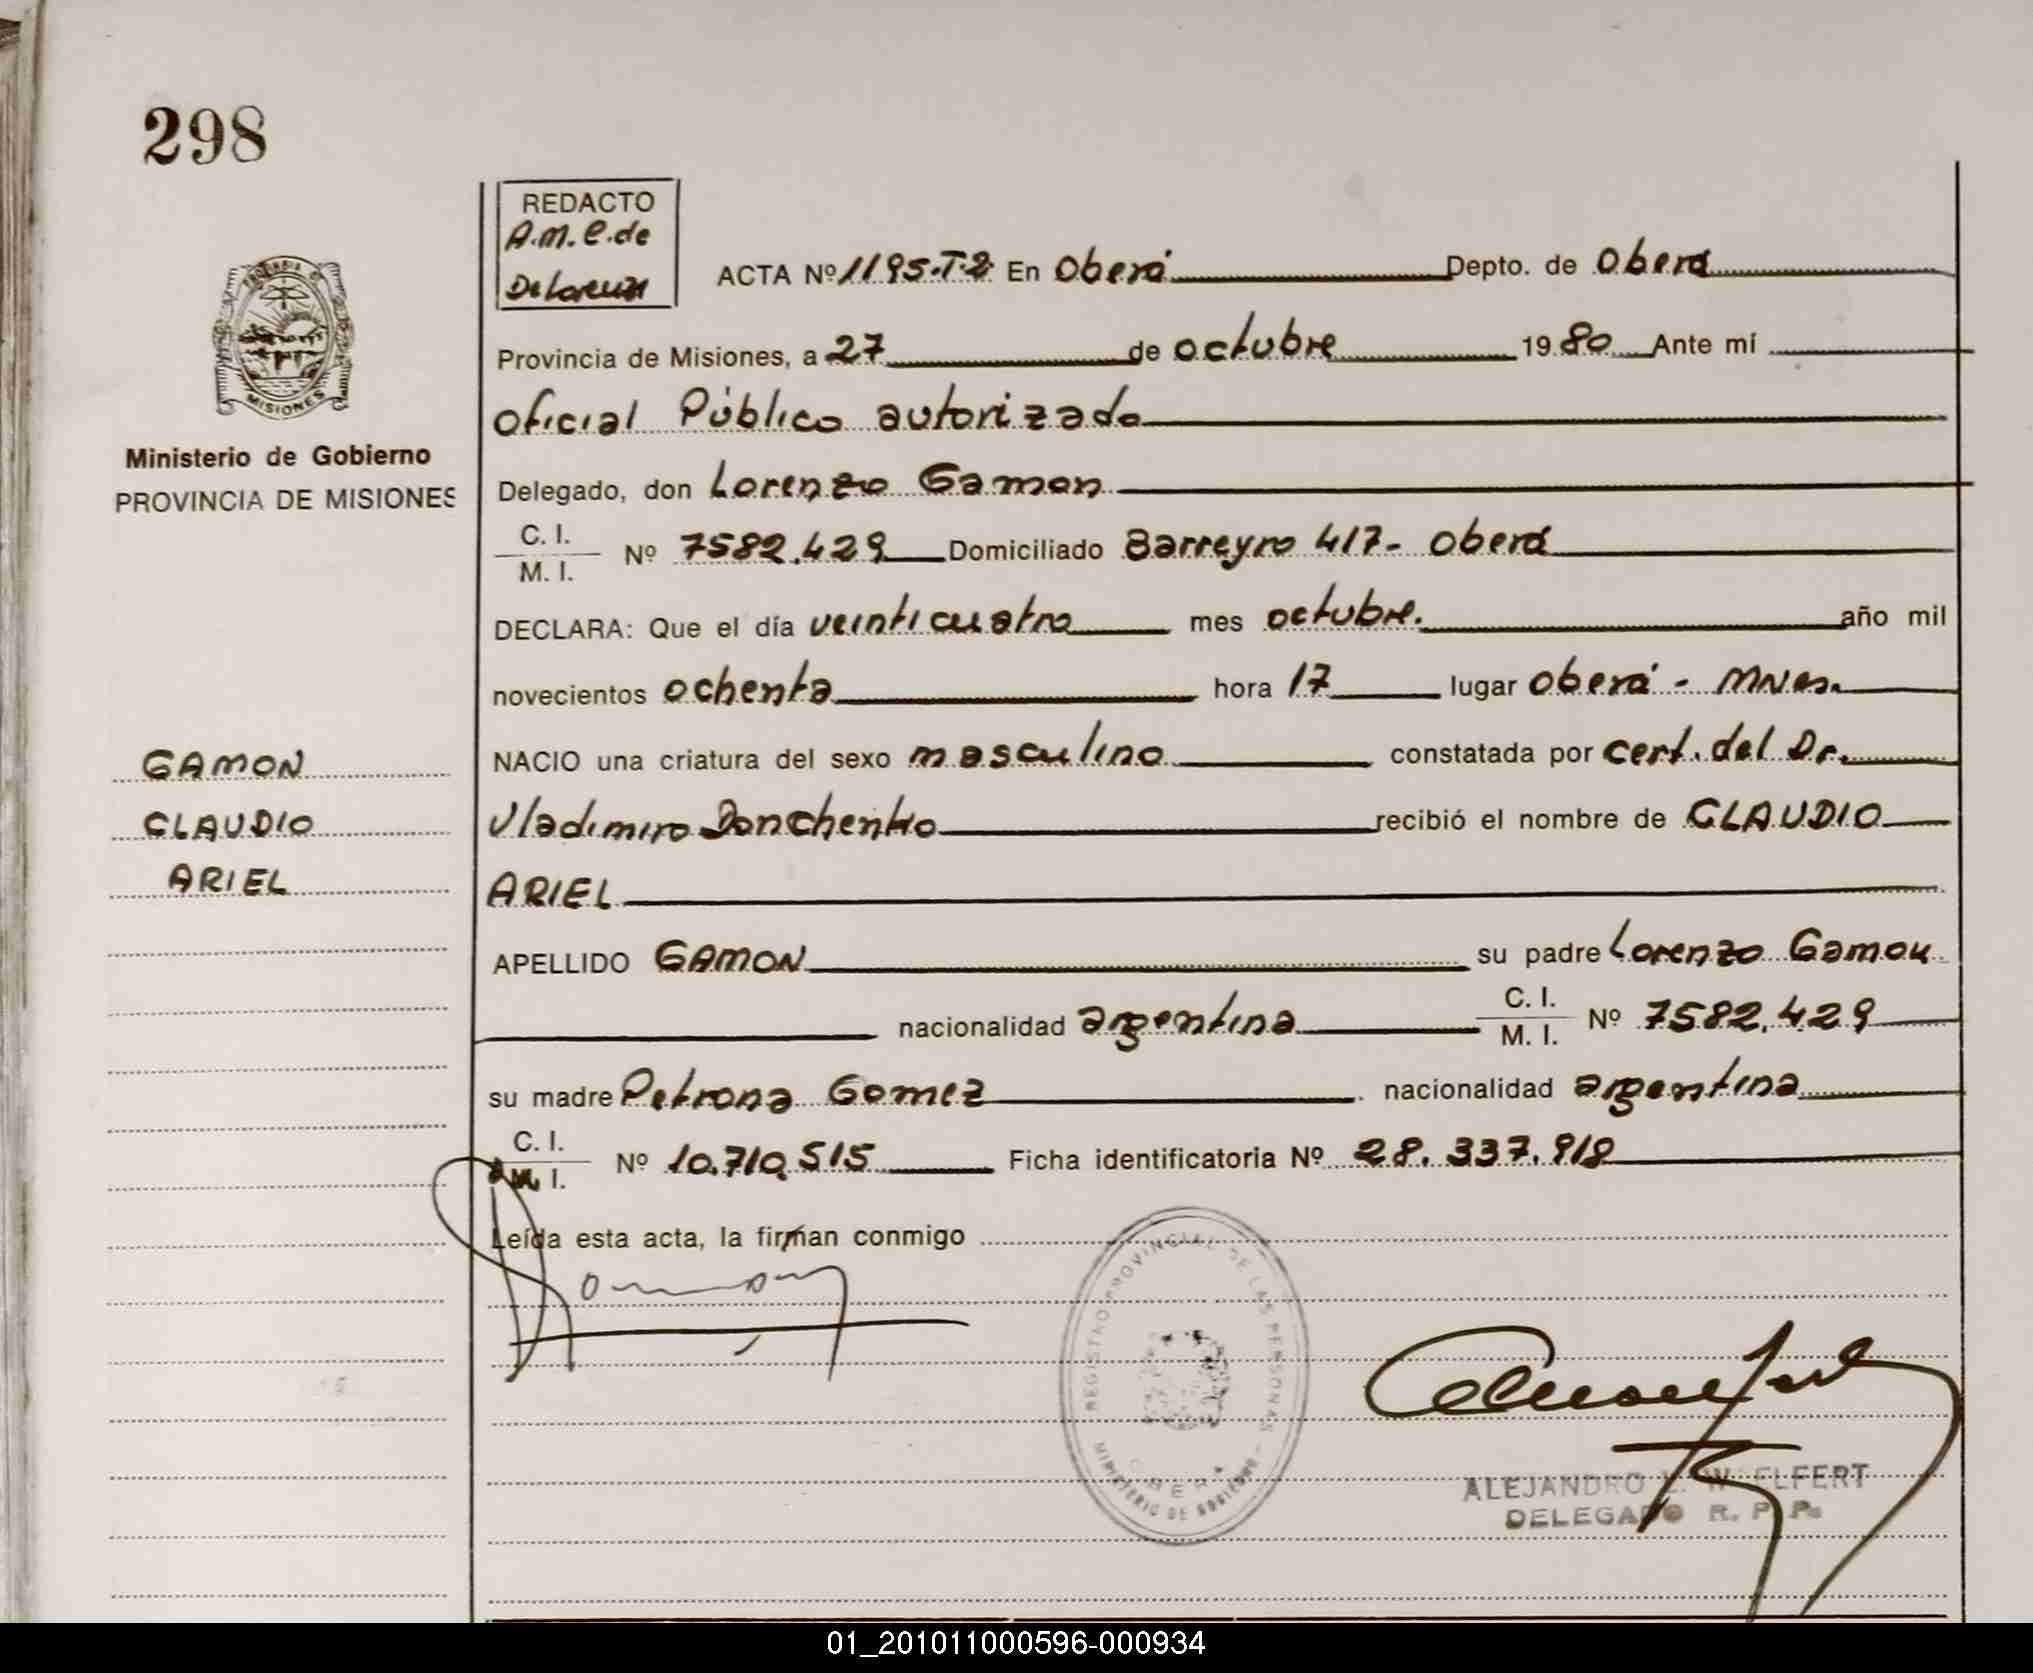 298
REDACTO
A.M.C.de
De Lorenzi
ACTA Nº 1195.T.2 En Oberá Depto. de Oberá
PROVINCIA DE MISIONES
Provincia de Misiones, a 27 de octubre 1980 Ante mí
oficial Público autorizado
Ministerio de Gobierno
PROVINCIA DE MISIONES
Delegado, don Lorenzo Gamon
C. I.
M. I. Nº 7582.429 Domiciliado Barreyro 417- Oberá
DECLARA: Que el día veinticuatro mes octubre. año mil
novecientos ochenta hora 17 lugar Oberá - Mnes.
GAMON
CLAUDIO
ARIEL
NACIO una criatura del sexo masculino constatada por cert. del Dr.
Vladimiro Donchenko recibió el nombre de CLAUDIO
ARIEL
APELLIDO GAMON su padre Lorenzo Gamon
nacionalidad argentina C. I.
M. I. Nº 7582.429
su madre Petrona Gomez nacionalidad argentina
C. I.
M. I. Nº 10.710.515 Ficha identificatoria Nº 28.337.918
Leída esta acta, la firman conmigo
REGISTRO PROVINCIAL DE LAS PERSONAS
OBERA
MINISTERIO DE GOBIERNO
ALEJANDRO
DELEGADO R. P. P.
01_201011000596-000934